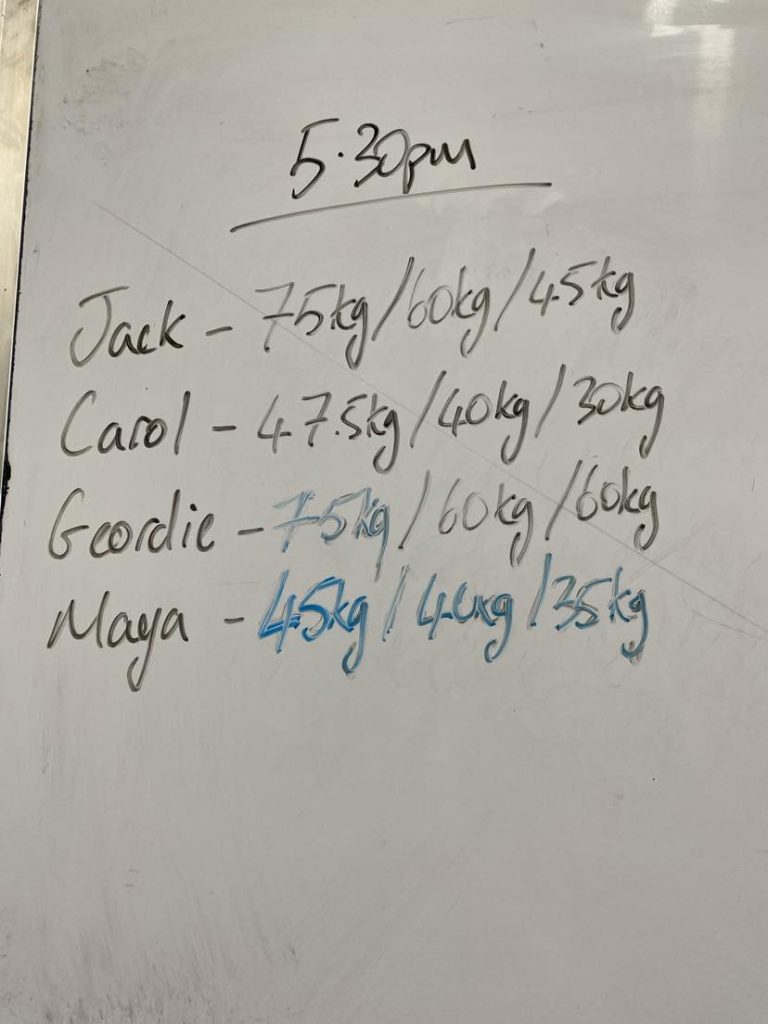 5.30pm
Jack - 75kg/60kg/45kg
Carol - 47.5kg/40kg/30kg
Geordie - 75kg/60kg/60kg
Maya - 45kg/40kg/35kg